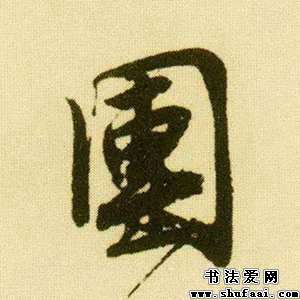 團
书法爱网
www.shufaai.com